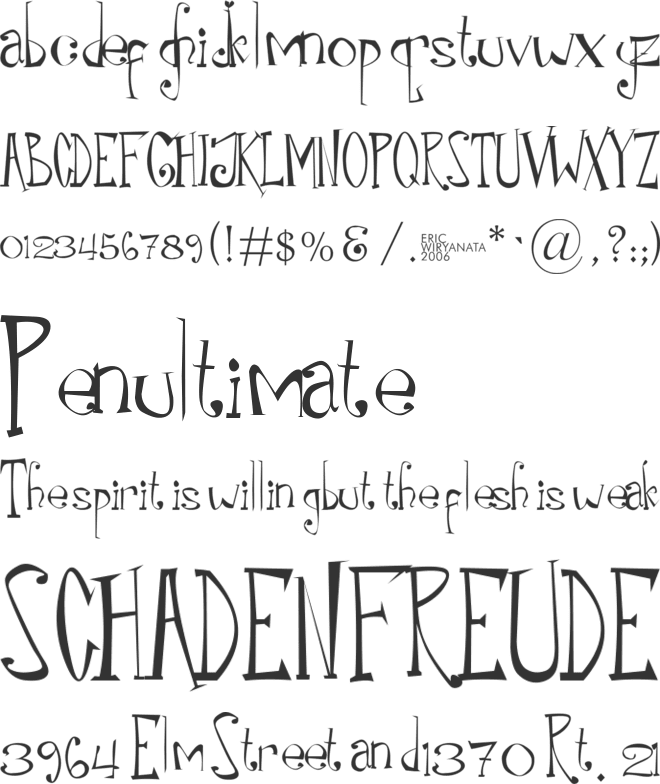 abcdef ghijklmnop qrstuvwx yz
ABCDEFGHIJKLMNOPQRSTUVWXYZ
0123456789(!#$%&/.ERIC WIRYANATA 2006*`@,?:;)
Penultimate
The spirit is willing but the flesh is weak
SCHADENFREUDE
3964 Elm Street and 1370 Rt. 21